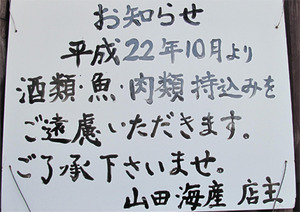 お知らせ
平成22年10月より
酒類・魚・肉類持込みを
ご遠慮いただきます。
ご了承下さいませ。
山田海産 店主